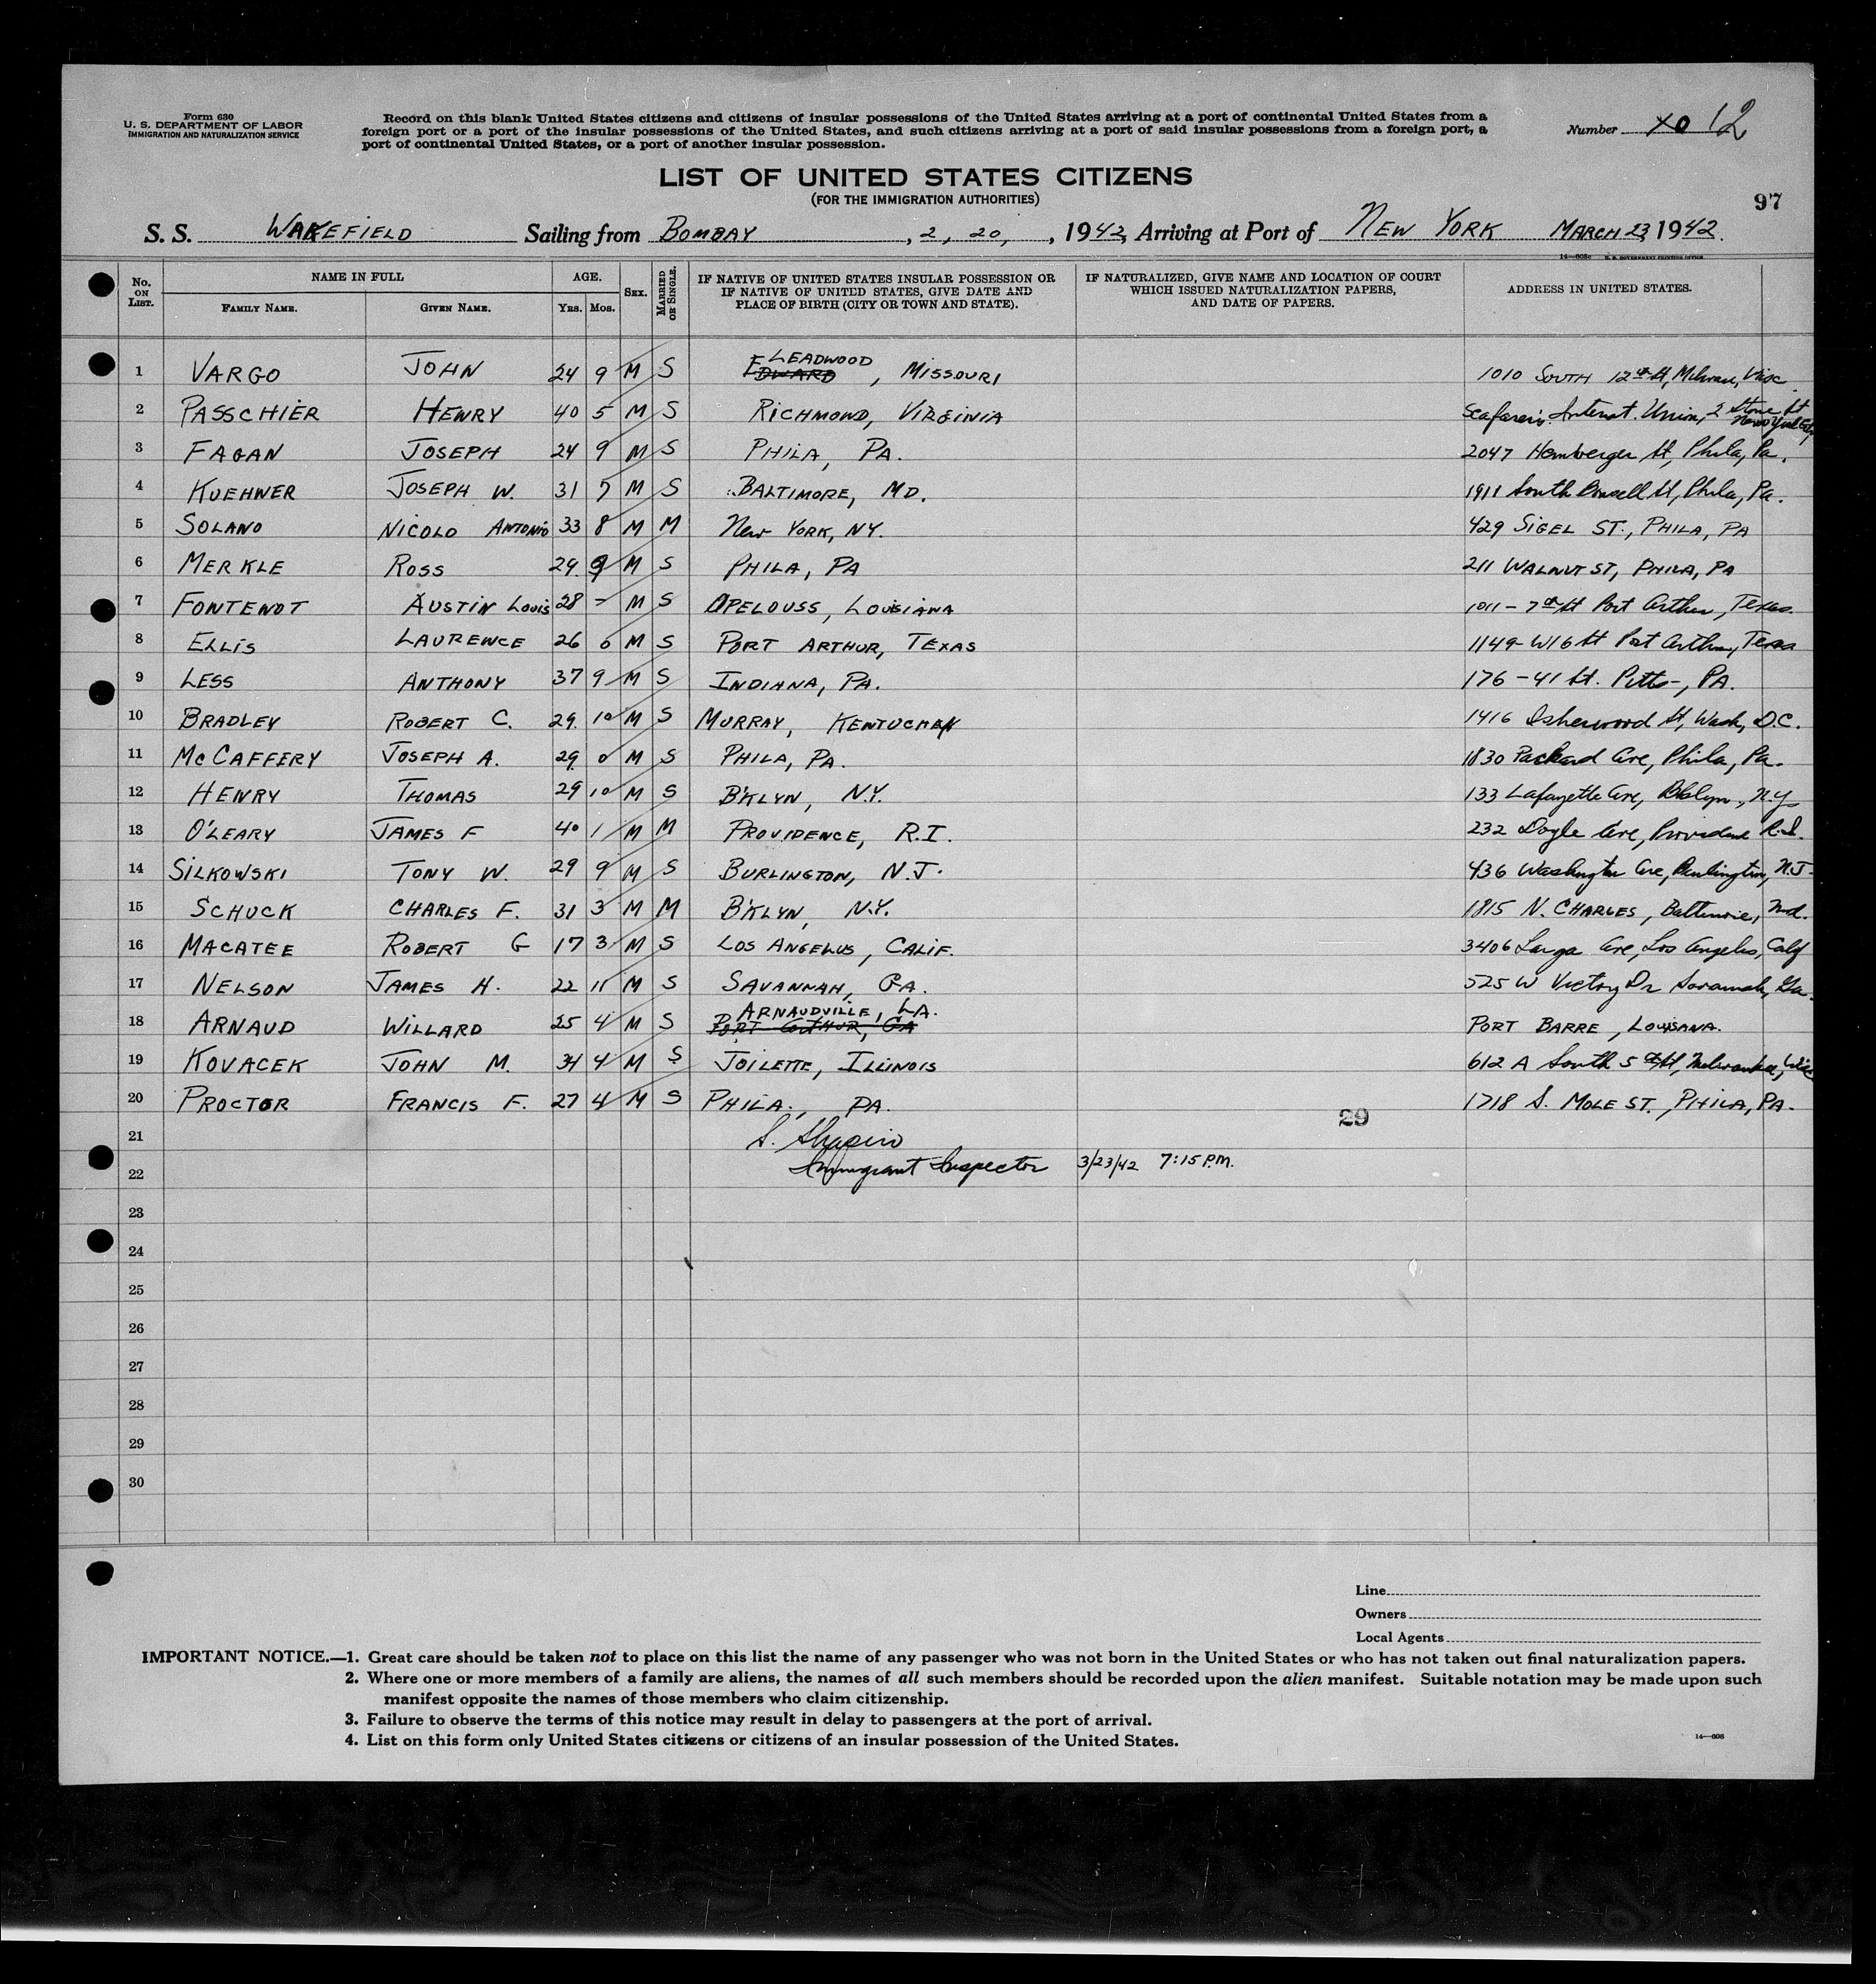 Form 630
U. S. DEPARTMENT OF LABOR
IMMIGRATION AND NATURALIZATION SERVICE
Record on this blank United States citizens and citizens of insular possessions of the United States arriving at a port of continental United States from a
foreign port or a port of the insular possessions of the United States, and such citizens arriving at a port of said insular possessions from a foreign port, a
port of continental United States, or a port of another insular possession.
Number 12
LIST OF UNITED STATES CITIZENS
(FOR THE IMMIGRATION AUTHORITIES)
97
S. S. WAKEFIELD Sailing from BOMBAY, 2, 20, , 1942, Arriving at Port of NEW YORK MARCH 23, 1942.
No. ON LIST. NAME IN FULL FAMILY NAME. GIVEN NAME. AGE. YRS. MOS. SEX. MARRIED OR SINGLE. IF NATIVE OF UNITED STATES INSULAR POSSESSION OR IF NATIVE OF UNITED STATES, GIVE DATE AND PLACE OF BIRTH (CITY OR TOWN AND STATE). IF NATURALIZED, GIVE NAME AND LOCATION OF COURT WHICH ISSUED NATURALIZATION PAPERS, AND DATE OF PAPERS. ADDRESS IN UNITED STATES.
1 VARGO JOHN 24 9 M S LEADWOOD, MISSOURI 1010 SOUTH 12th St, Milwau, Wisc.
2 PASSCHIER HENRY 40 5 M S RICHMOND, VIRGINIA Seafarers Internat. Union, 2 Stone St New York City
3 FAGAN JOSEPH 24 9 M S PHILA, PA. 2047 Hemberger St, Phila, Pa.
4 KUEHWER JOSEPH W. 31 7 M S BALTIMORE, MD. 1911 South St, Phila, Pa.
5 SOLANO NICOLO ANTONIO 33 8 M M New YORK, NY. 429 SIGEL ST., PHILA, PA
6 MERKLE ROSS 29 9 M S PHILA, PA 211 WALNUT ST, PHILA, PA
7 FONTENOT AUSTIN LOUIS 28 - M S OPELOUSS, LOUISIANA 1011 - 7th St Port Arthur, Texas.
8 ELLIS LAURENCE 26 0 M S PORT ARTHUR, TEXAS 1149- W16 St Port Arthur, Texas
9 LESS ANTHONY 37 9 M S INDIANA, PA. 176 - 41 St. Pitts-, PA.
10 BRADLEY ROBERT C. 29 10 M S MURRAY, KENTUCKEY 1416 Isherwood St, Wash, D.C.
11 McCAFFERY JOSEPH A. 29 0 M S PHILA, PA. 1830 Packard Ave, Phila, Pa.
12 HENRY THOMAS 29 10 M S B'KLYN, N.Y. 133 Lafayette Ave, Bklyn, N.Y
13 O'LEARY JAMES F 40 1 M M PROVIDENCE, R.I. 232 Doyle Ave, Providence R.I.
14 SILKOWSKI TONY W. 29 9 M S BURLINGTON, N.J. 436 Washington Ave, Burlington, N.J.
15 SCHUCK CHARLES F. 31 3 M M B'KLYN, N.Y. 1815 N. CHARLES, Baltimore, Md.
16 MACATEE ROBERT G 17 3 M S LOS ANGELUS, CALIF. 3406 Larga Ave, Los Angeles, Calif
17 NELSON JAMES H. 22 11 M S SAVANNAH, GA. 525 W Victory Dr Savannah, Ga.
18 ARNAUD WILLARD 25 4 M S ARNAUDVILLE, LA. PORT ARTHUR, GA PORT BARRE, LOUISANA.
19 KOVACEK JOHN M. 34 4 M S JOILETTE, ILLINOIS 612 A South 5th St, Milwaukee, Wisc
20 PROCTOR FRANCIS F. 27 4 M S PHILA., PA. 1718 S. MOLE ST., PHILA, PA.
29
21 S. Shapiro
22 Immigrant Inspector 3/23/42 7:15 P.M.
23
24
25
26
27
28
29
30
Line
Owners
Local Agents
IMPORTANT NOTICE.—1. Great care should be taken not to place on this list the name of any passenger who was not born in the United States or who has not taken out final naturalization papers.
2. Where one or more members of a family are aliens, the names of all such members should be recorded upon the alien manifest. Suitable notation may be made upon such
manifest opposite the names of those members who claim citizenship.
3. Failure to observe the terms of this notice may result in delay to passengers at the port of arrival.
4. List on this form only United States citizens or citizens of an insular possession of the United States.
14—608